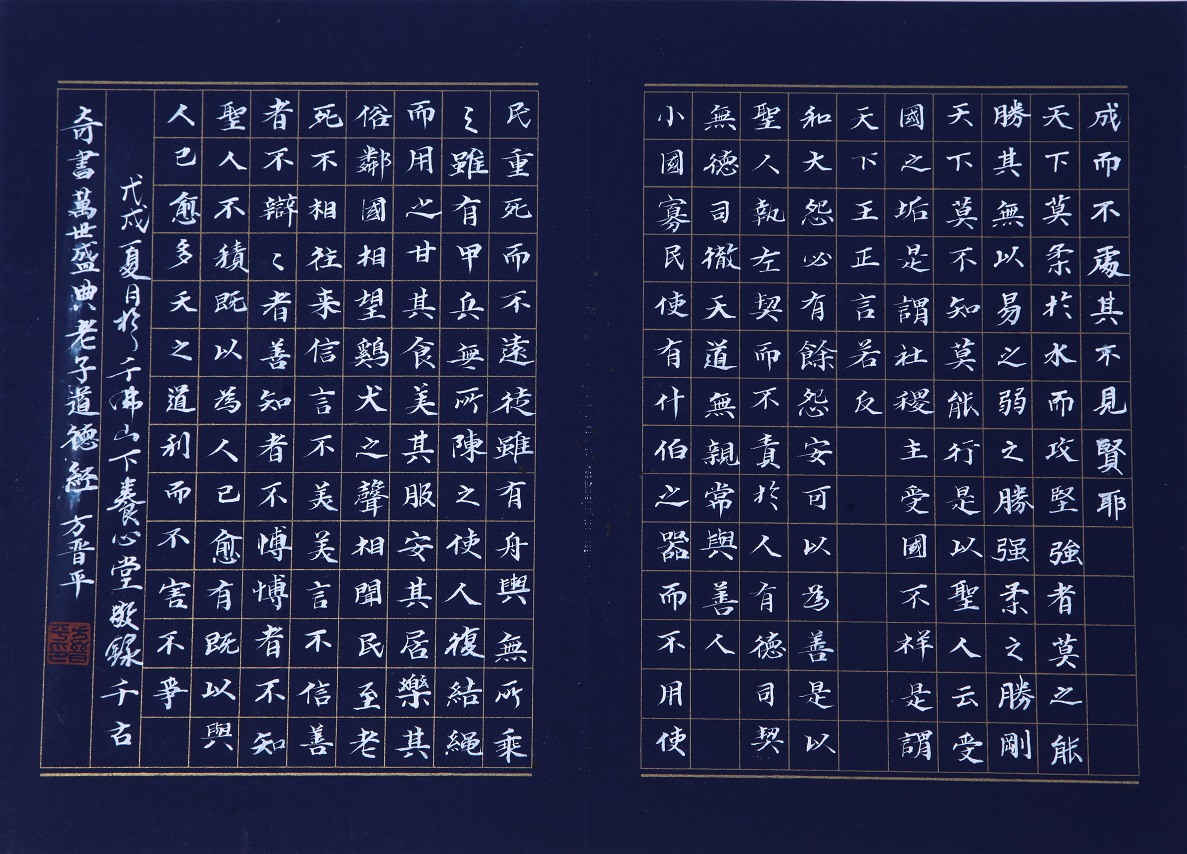 成而不處其不見賢耶
天下莫柔於水而攻堅強者莫之能
勝其無以易之弱之勝强柔之勝剛
天下莫不知莫能行是以聖人云受
國之垢是謂社稷主受國不祥是謂
天下王正言若反
和大怨必有餘怨安可以為善是以
聖人執左契而不責於人有德司契
無德司徹天道無親常與善人
小國寡民使有什伯之器而不用使
民重死而不遠徒雖有舟輿無所乘
之雖有甲兵無所陳之使人復結繩
而用之甘其食美其服安其居樂其
俗鄰國相望鷄犬之聲相聞民至老
死不相往来信言不美美言不信善
者不辯辯者善知者不博博者不知
聖人不積既以為人己愈有既以與
人己愈多天之道利而不害不爭
戊戌夏日於千佛山下養心堂敬錄千古
奇書萬世盛典老子道德經 方晋平